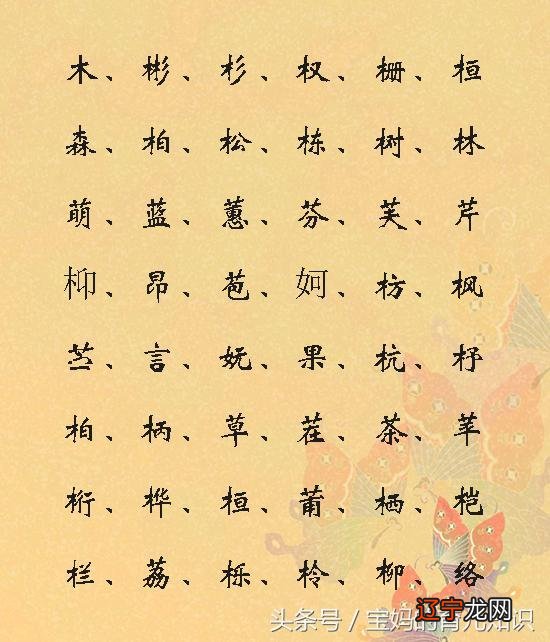 木、彬、杉、权、栅、桓
森、柏、松、栋、树、林
萌、蓝、蕙、芬、芙、芹
枊、昂、苞、妸、枋、枫
苎、言、妩、果、杭、杼
柏、柄、草、茬、茶、苹
桁、桦、桓、莆、栖、桤
栏、荔、栎、柃、柳、络
头条号／宝妈的育儿知识
辽宁龙网